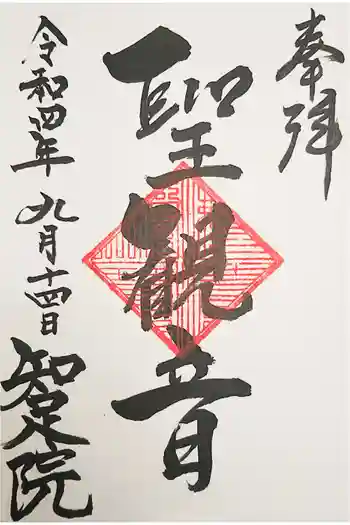 奉拝
聖観音
令和四年九月十四日
智足院